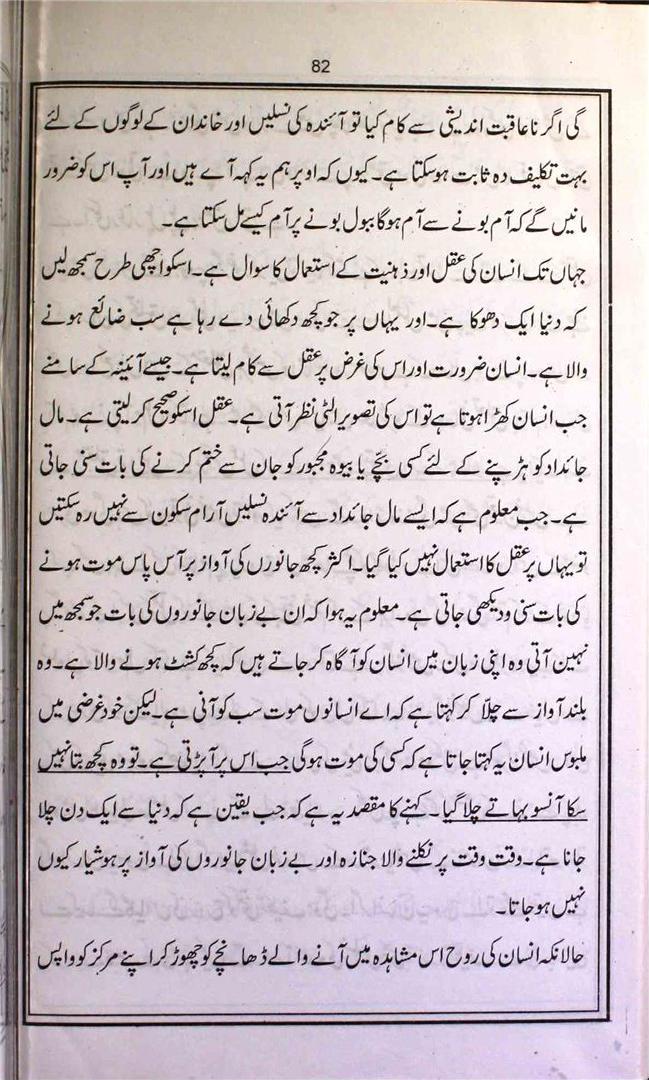 82
گی اگر نا عاقبت اندیشی سے کام کیا تو آئندہ کی نسلیں اور خاندان کے لوگوں کے لئے
بہت تکلیف دہ ثابت ہو سکتا ہے۔ کیوں کہ اوپر ہم یہ کہہ آے ہیں اور آپ اس کو ضرور
مانیں گے کہ آم بونے سے آم ہوگا ببول بونے پر آم کیسے مل سکتا ہے۔
جہاں تک انسان کی عقل اور ذہنیت کے استعمال کا سوال ہے۔ اسکو اچھی طرح سمجھ لیں
کہ دنیا ایک دھوکا ہے۔ اور یہاں پر جو کچھ دکھائی دے رہا ہے سب ضائع ہونے
والا ہے۔ انسان ضرورت اور اس کی غرض پر عقل سے کام لیتا ہے۔ جیسے آئینہ کے سامنے
جب انسان کھڑا ہوتا ہے تو اس کی تصویر الٹی نظر آتی ہے۔ عقل اسکو صحیح کر لیتی ہے۔ مال
جائداد کو ہڑپنے کے لئے کسی بچے یا بیوہ مجبور کو جان سے ختم کرنے کی بات سنی جاتی
ہے۔ جب معلوم ہے کہ ایسے مال جائداد سے آئندہ نسلیں آرام سکون سے نہیں رہ سکتیں
تو یہاں پر عقل کا استعمال نہیں کیا گیا۔ اکثر کچھ جانورں کی آواز پر آس پاس موت ہونے
کی بات سنی و دیکھی جاتی ہے۔ معلوم یہ ہوا کہ ان بے زبان جانوروں کی بات جو سمجھ میں
نہین آتی وہ اپنی زبان میں انسان کو آگاہ کر جاتے ہیں کہ کچھ کشٹ ہونے والا ہے۔ وہ
بلند آواز سے چلّا کر کہتا ہے کہ اے انسانوں موت سب کو آنی ہے۔ لیکن خود غرضی میں
ملبوس انسان یہ کہتا جاتا ہے کہ کسی کی موت ہوگی جب اس پر آپڑتی ہے۔ تو وہ کچھ بتا نہیں
سکا آنسو بہاتے چلا گیا۔ کہنے کا مقصد یہ ہے کہ جب یقین ہے کہ دنیا سے ایک دن چلا
جانا ہے۔ وقت وقت پر نکلنے والا جنازہ اور بے زبان جانوروں کی آواز پر ہوشیار کیوں
نہیں ہو جاتا۔
حالانکہ انسان کی روح اس مشاہدہ میں آنے والے ڈھانچے کو چھوڑ کر اپنے مرکز کو واپس